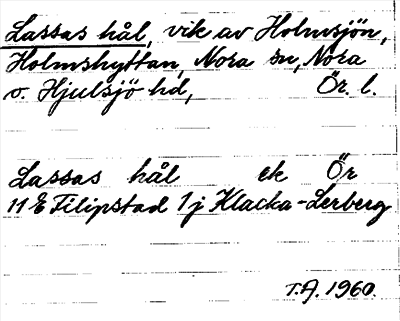 Lassas hål, vik av Holmsjön,
Holmshyttan, Nora sn, Nora
o. Hjulsjö hd, Ör. l.
Lassas hål ek Ör
11 E Filipstad 1 j Klacka-Lerberg
T.A. 1960.